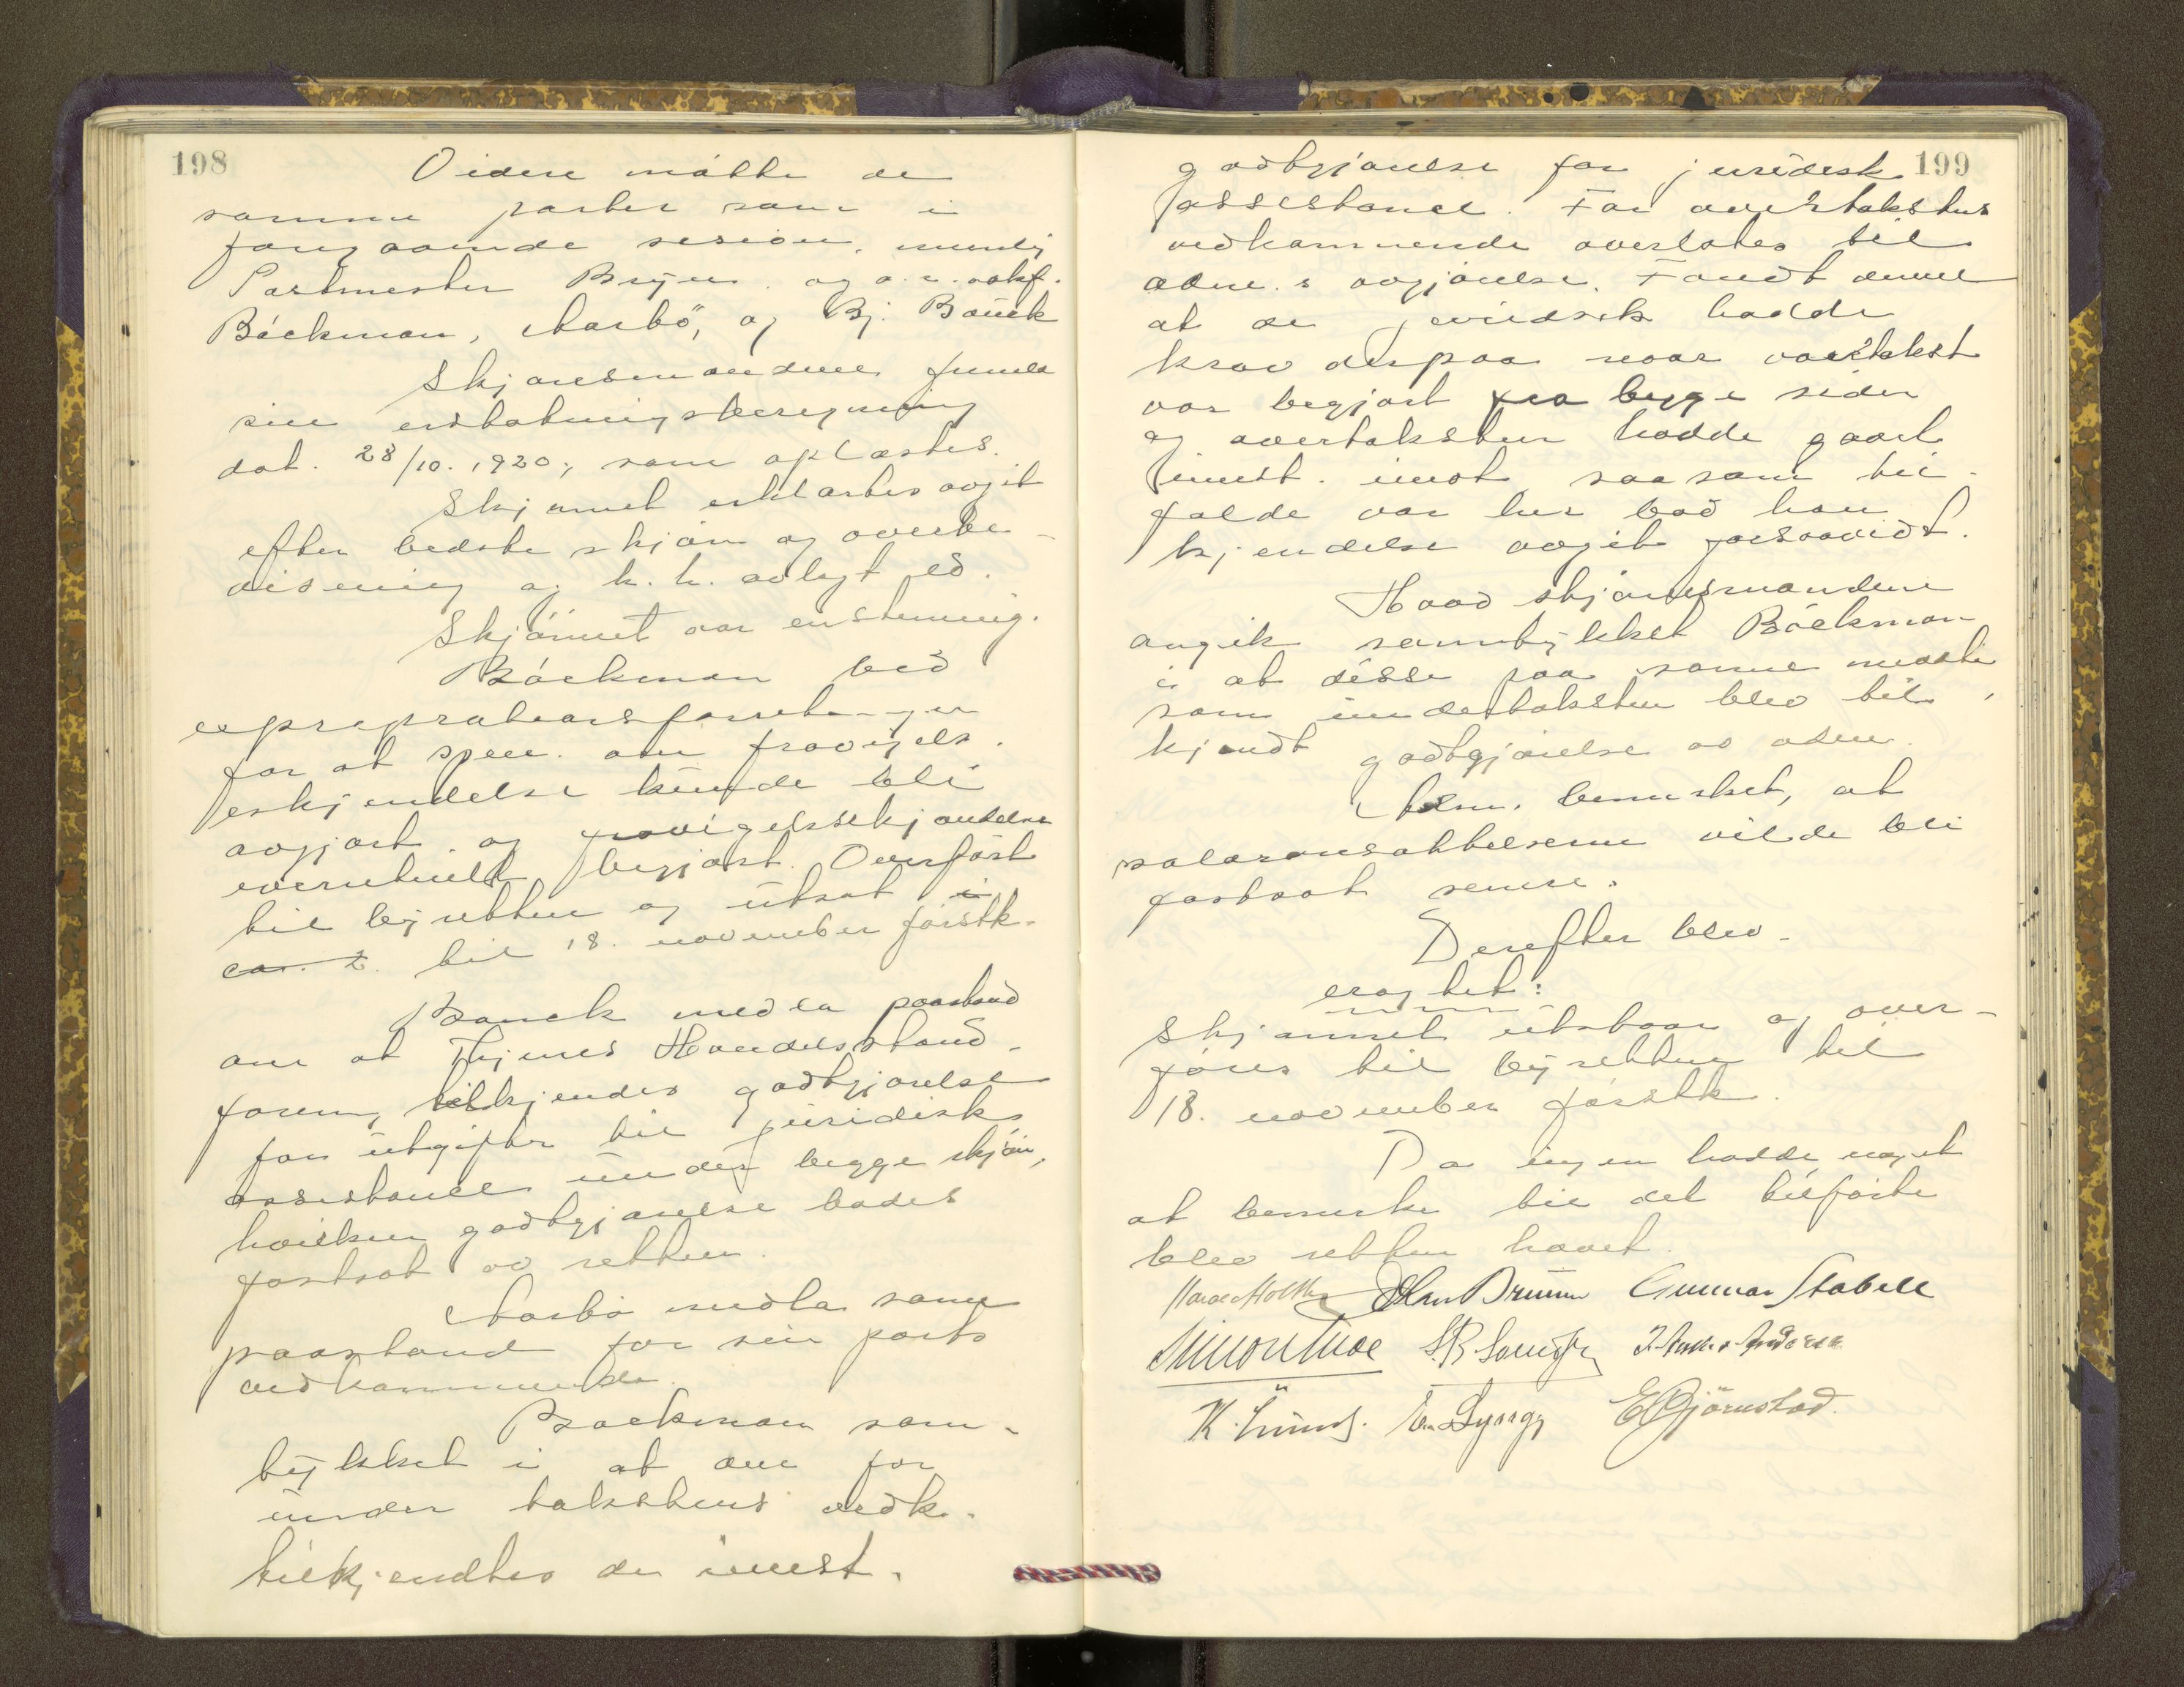 198
Videre møtte de
samme parter som i
foregaaende sesion, nemlig
Postmester Bryn og o.r.sakf.
Böckman, Aarbö, og Bj. Bouck
Skjønsmændene fremla
sin erstatningsberegning
dat. 28/10. 1920, som oplæstes.
Skjønnet erklærtes avgit
efter bedste skjøn og overbe-
visning og h.h. avlagt ed.
Skjønnet var enstemmig.
Böckman bad
expropriationsforretningen
for at spm. om fravigels.
eskjendelse kunde bli
avgjort og fravigelseskjendelse
eventuelt begjært. Overført
til byretten og utsat i
ca. 2. til 18. november førstk.
Bouck nedla paastand
om at Tjømes Handelsstand-
forening tilkjendes godtgjørelse
for utgifter til juridisk
assistance under begge skjøn,
hvilken godtgjørelse bades
fastsat av retten.
Aarbö nedla samme
paastand for sin parts
vedkommende.
Böckman sam-
tykket i at der for
under takstens vedk.
tilkjendtes de innst.
199
godtgjørelse for juridisk
assistance. For overtakstens
vedkommende overlates til
adm.s avgjørelse. Fandt denne
at de juridisk hadde
krav derpaa naar overtakst
var begjært fra begge sider
og overtaksten hadde gaat
innst. imot saasom til-
fælde var her bad han
kjendelse avgit forsaavidt.
Hvad skjønsmændene
angik samtykket Böckman
i at disse paa samme maate
som undertaksten blev til-
kjendt godtgjørelse av adm.
Adm. bemerket, at
salæransættelserne vilde bli
fastsat senere.
Derefter blev
eragtet:
Skjønnet utstaar og over-
føres til byretten til
18. november førstk.
Da ingen hadde noget
at bemerke til det tilførte
blev retten hævet.
Gunnar Stabell
Simon Moe
K. Lund. E. Bjørnstad.